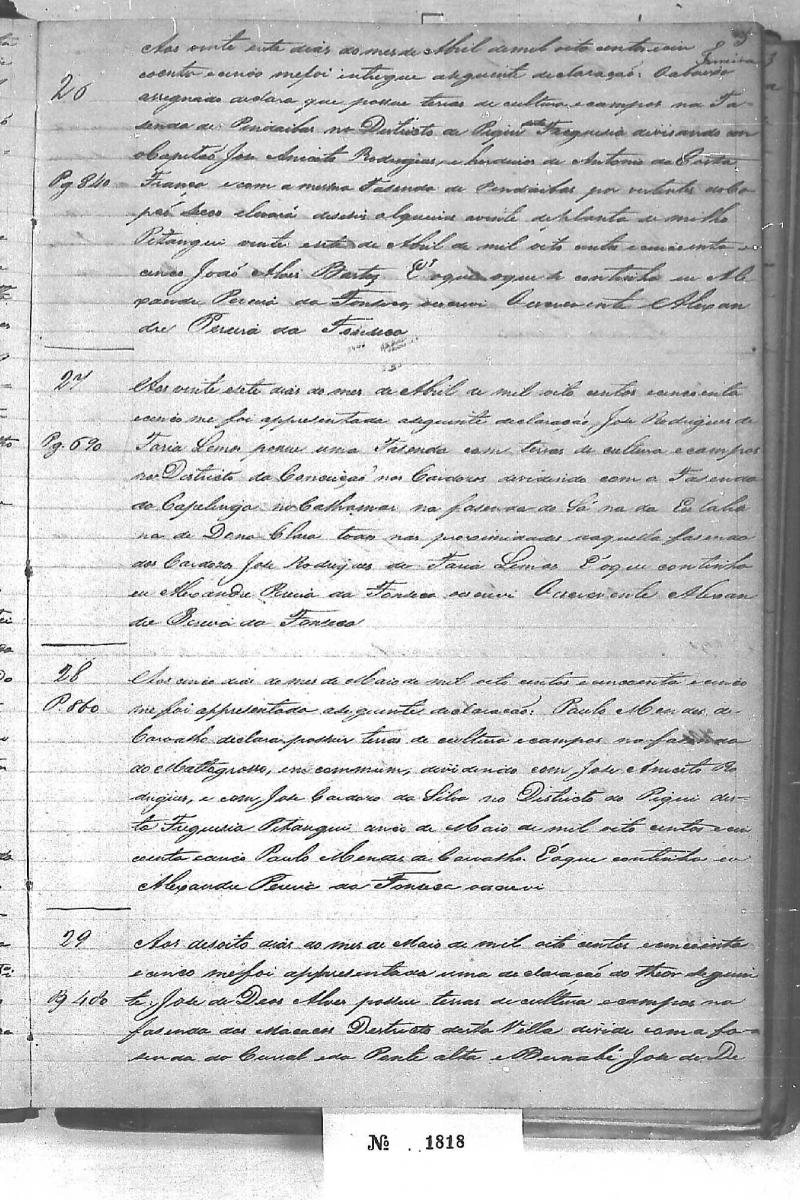 3
Ferreira
26
Aos vinte sete dias do mes de Abril de mil oito centos e cin
coenta e cinco me foi entregue a seguinte declaração. O abaixo
assignado declara que possue terras de cultura e campos na Fa-
senda de Pindaibas no Districto de Piqui desta Freguesia devisando com
o Capitão Jose Aniceto Rodrigues, e herdeiros de Antonio da Costa
Pg 840
Franco e com a mesma Fasenda de Pindaibas por vertentes do Ca
pão Secco levará deseseis alqueires avinte de planta de milho
Pitangui vinte sete de Abril de mil oito centos e cincoenta e
cinco João Alves Bartos E's o que se continha eu Ale
xandre Pereira da Fonseca, escrevi O escrevente Alexan
dre Pereira da Fonseca
27
Aos vinte e sete dias do mes de Abril de mil oito centos e cincoenta
e cinco me foi appresentada a seguinte declaração, Jose Rodrigues de
Pg. 690
Faria Lemos possue uma Fasenda com terras de cultura e campos
no Districto da Conceição nos Cardozos dividindo com a Fasenda
do Capelinga no Cathamar na fasenda do Sá na da
na de Dona Clara todas nas proximidades daquella fasenda
dos Cardozos Jose Rodrigues de Faria Lemos E'o que continha
eu Alexandre Pereira da Fonseca escrevi O escrevente Alexan
dre Pereira da Fonseca
28
Aos cinco dias do mes de Maio de mil oito centos e cincoenta e cinco
P. 860
me foi appresentada a seguinte declaração: Paulo Mendes de
Carvalho declara possuir terras de cultura e campos na fasenda
do Mattogrosso, em commum, dividindo com, Jose Aniceto Ro
drigues, e com, Jose Cardozo da Silva no Districto do Piqui des-
ta Freguesia Pitangui cinco de Maio de mil oito centos e cin
coenta e cinco Paulo Mendes de Carvalho. E'o que continha eu
Alexandre Pereira da Fonseca escrevi
29
Aos desoito dias do mes de Maio de mil oito centos e cincoenta
e cinco me foi appresentada uma declaração do theor seguin
Pg 480
te. Jose de Deos Alves possue terras de cultura e campos na
fasenda dos Macacos Destricto desta Villa divide com a fa-
senda do Curral e da Ponte alta e Bernabé Jose de De
№ 1818